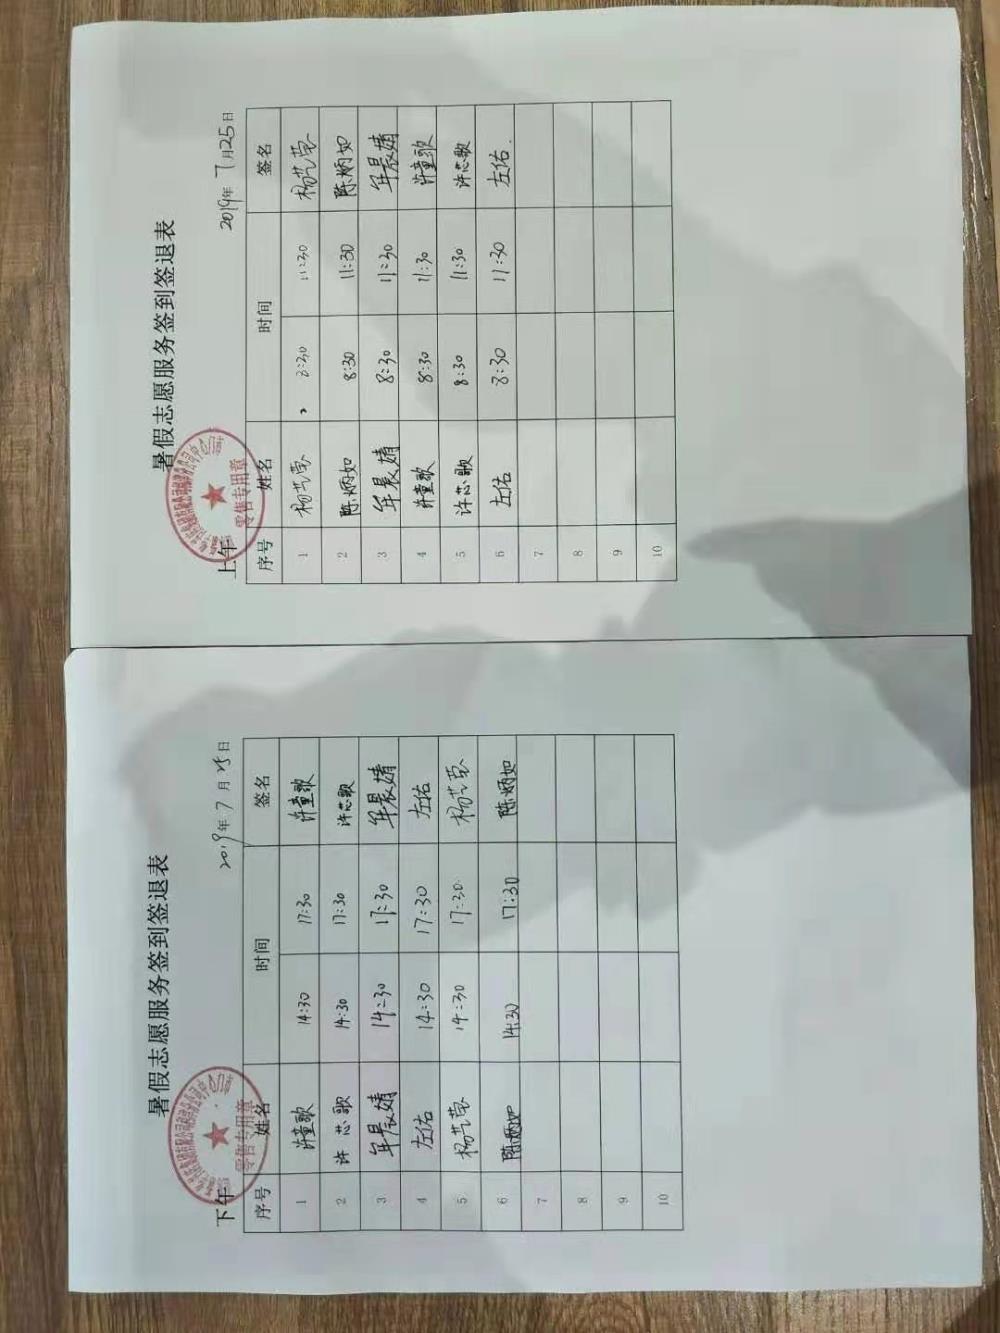 暑假志愿服务签到签退表
上午 2019年 7月25日
序号 姓名 时间 签名
1 8:30 11:30
2 陈炳如 8:30 11:30 陈炳如
3 年晨婧 8:30 11:30 年晨婧
4 许童歌 8:30 11:30 许童歌
5 许芯歌 8:30 11:30 许芯歌
6 左佑 8:30 11:30 左佑
7
8
9
10
零售专用章
暑假志愿服务签到签退表
下午 2019年7月25日
序号 姓名 时间 签名
1 许童歌 14:30 17:30 许童歌
2 许芯歌 14:30 17:30 许芯歌
3 年晨婧 14:30 17:30 年晨婧
4 左佑 14:30 17:30 左佑
5 14:30 17:30
6 陈炳如 14:30 17:30 陈炳如
7
8
9
10
零售专用章